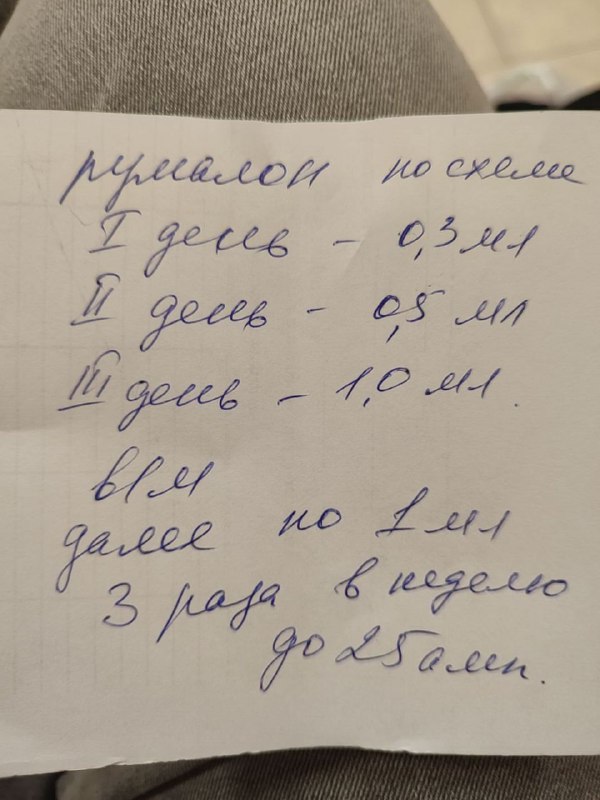 румалон по схеме
I день – 0,3 мл
II день – 0,5 мл
III день – 1,0 мл.
в/м
далее по 1 мл
3 раза в неделю
до 25 амп.